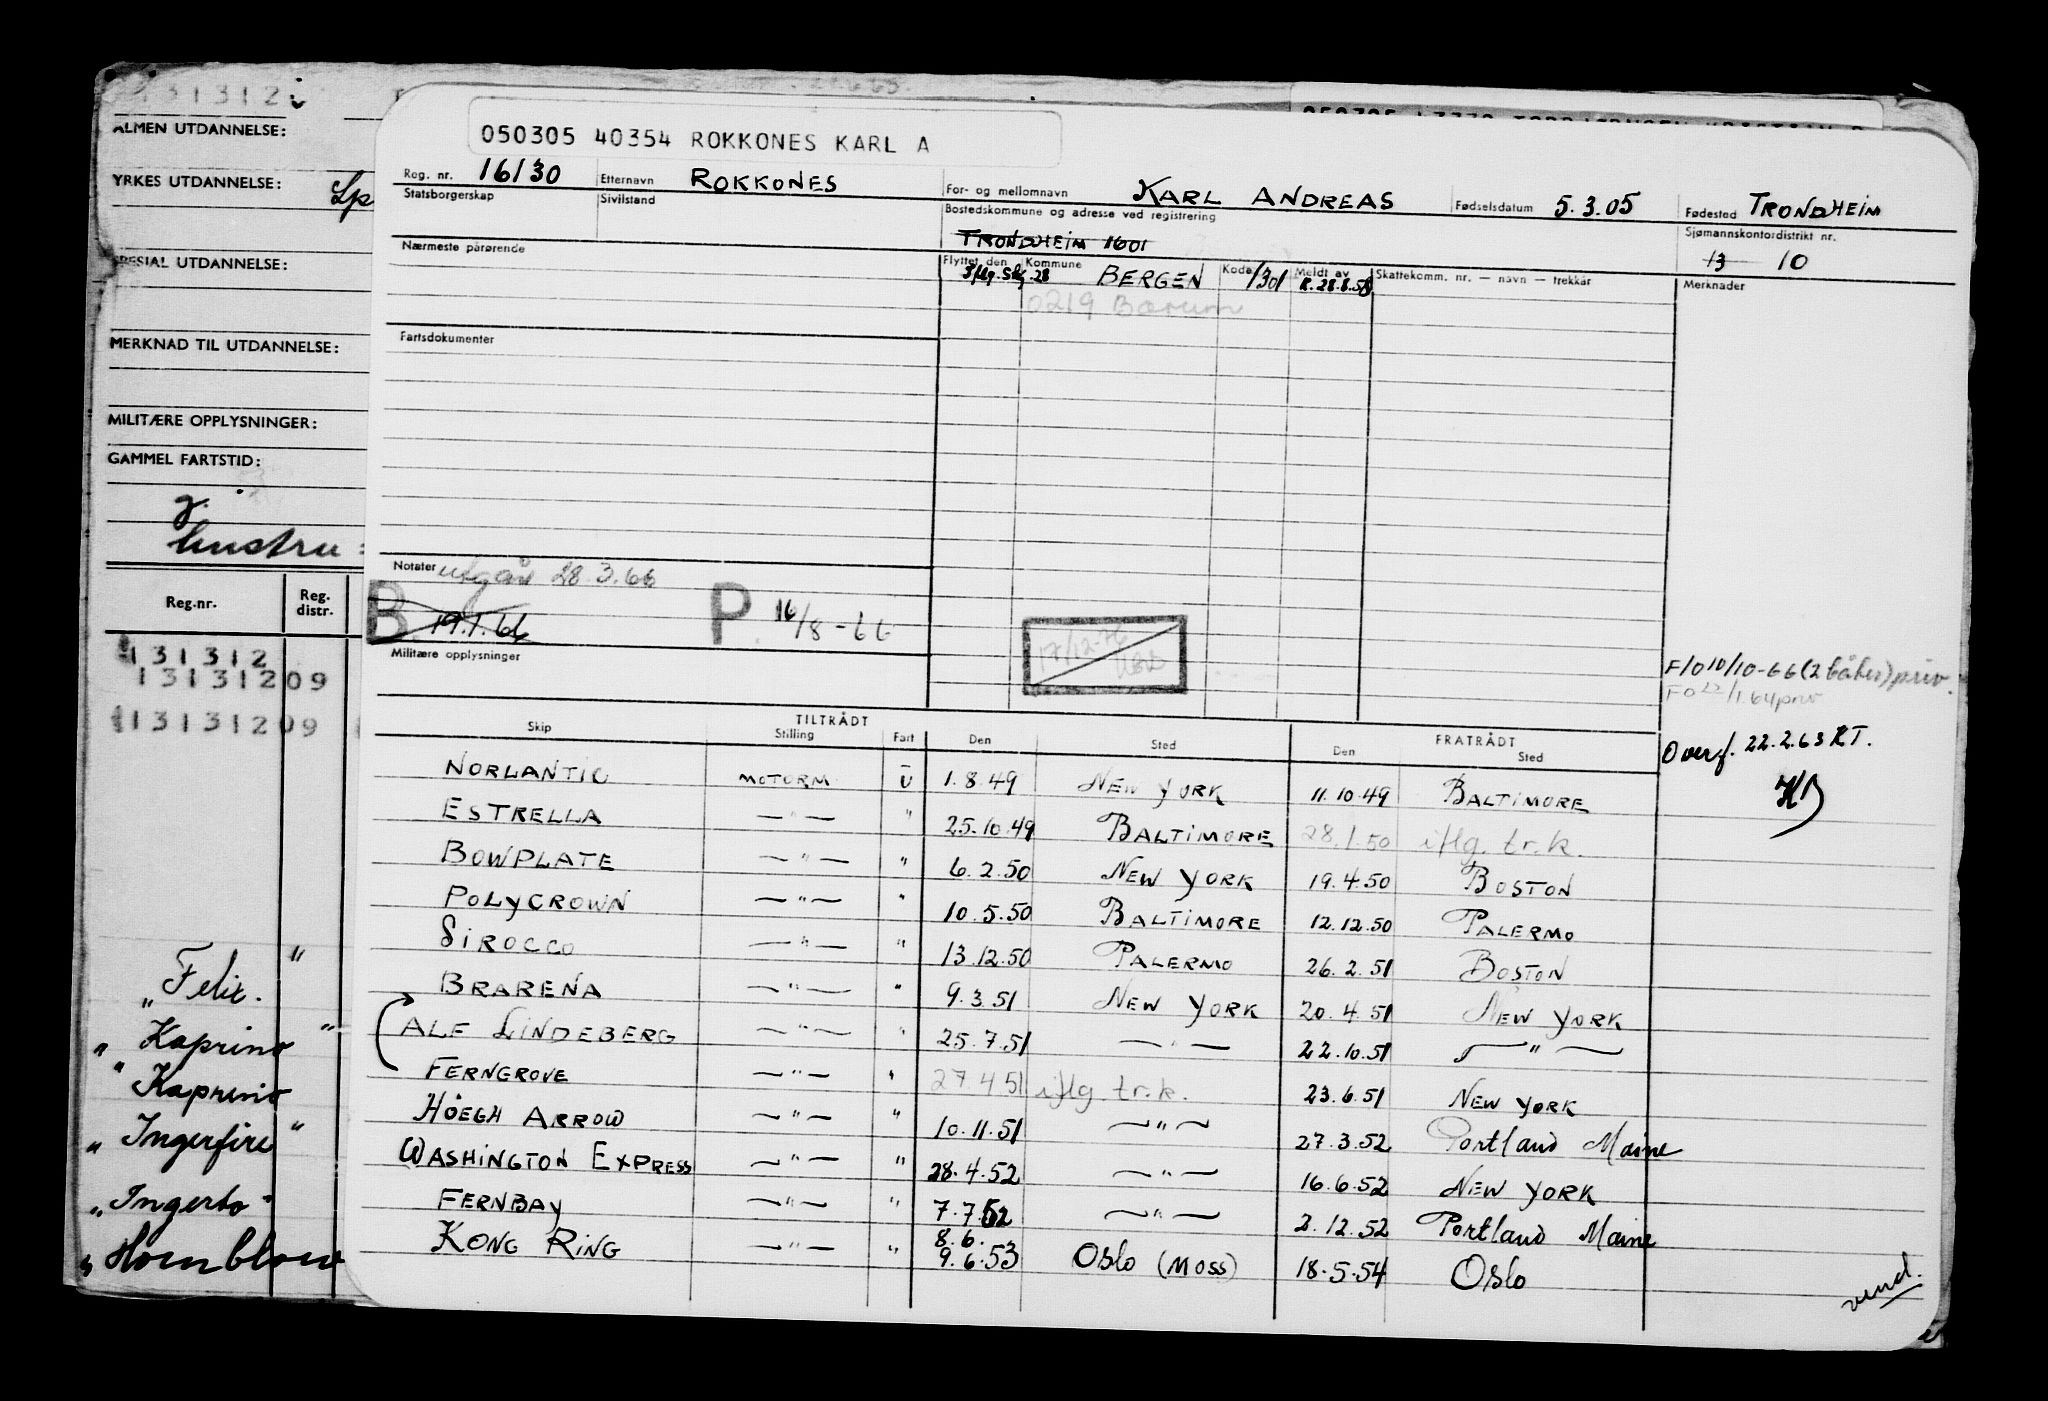 131312
ALMEN UTDANNELSE:
YRKES UTDANNELSE:
SPESIAL UTDANNELSE:
MERKNAD TIL UTDANNELSE:
MILITÆRE OPPLYSNINGER:
GAMMEL FARTSTID:
g.
hustru =
Reg.nr. Reg. distr.
131312
13131209
13131209
"Felix. "
"Kaprino "
"Kaprino
"Ingerfire "
"Ingerto"
"Hornblow
050305 40354 ROKKONES KARL A
Reg. nr. 16130 Etternavn ROKKONES For- og mellomnavn KARL ANDREAS Fødselsdatum 5.3.05 Fødested TRONDHEIM
Statsborgerskap Sivilstand Bostedskommune og adresse ved registrering Sjømannskontordistrikt nr.
TRONDHEIM 1601 13 10
Nærmeste pårørende Flyttet den Kommune BERGEN Kode 1301 Meldt av K.28.8.58 Skattekomm. nr. — navn — trekkår Merknader
0219 Bærum
Fartsdokumenter
Notater utgår 28.3.66
B 19.1.66 P. 16/8-66
17/12-76
Militære opplysninger
F/O 10/10-66 (2 båter) priv.
FO 22/1.64 priv
Overf. 22.2.63 RT.
TILTRÅDT FRATRÅDT
Skip Stilling Fart Den Sted Den Sted
NORLANTIC MOTORM U 1.8.49 NEW YORK 11.10.49 BALTIMORE
ESTRELLA —"— " 25.10.49 BALTIMORE 28.1.50 iflg. tr.k.
BOWPLATE —"— " 6.2.50 NEW YORK 19.4.50 BOSTON
POLYCROWN —"— " 10.5.50 BALTIMORE 12.12.50 PALERMO
SIROCCO —"— " 13.12.50 PALERMO 26.2.51 BOSTON
BRARENA —"— " 9.3.51 NEW YORK 20.4.51 NEW YORK
ALF LINDEBERG —"— " 25.7.51 —"— 22.10.51 —"—
FERNGROVE —"— " 27.4.51 iflg. tr.k. 23.6.51 NEW YORK
HÖEGH ARROW —"— " 10.11.51 —"— 27.3.52 Portland Maine
WASHINGTON EXPRESS —"— " 28.4.52 —"— 16.6.52 NEW YORK
FERNBAY —"— " 7.7.52 —"— 2.12.52 Portland Maine
8.6.
KONG RING —"— " 9.6.53 OSLO (MOSS) 18.5.54 OSLO
vend.